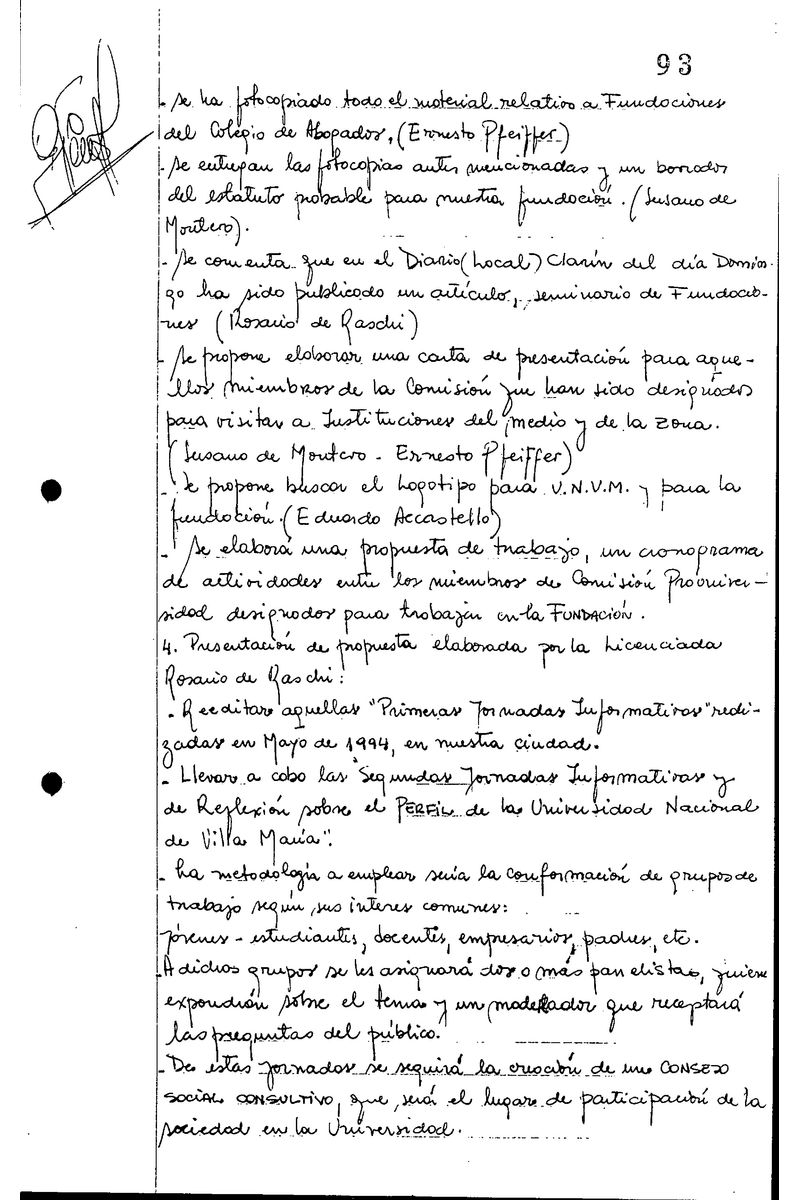 93
- Se ha fotocopiado todo el material relativo a Fundaciones
del Colegio de Abogados, (Ernesto Pfeiffer)
- Se entregan las fotocopias antes mencionadas y un borrador
del estatuto probable para nuestra fundación. (Susana de
Montero).
- Se comenta que en el Diario (Local) Clarín del día Domin-
go ha sido publicado un artículo, seminario de Fundacio-
nes (Rosario de Raschi)
- Se propone elaborar una carta de presentación para aque-
llos miembros de la Comisión que han sido designados
para visitar a Instituciones del medio y de la zona.
(Susana de Montero - Ernesto Pfeiffer)
- Se propone buscar el Logotipo para U.N.V.M. y para la
fundación. (Eduardo Accastello)
- Se elabora una propuesta de trabajo, un cronograma
de actividades entre los miembros de Comisión Prouniver-
sidad designados para trabajar en la FUNDACIÓN.
4. Presentación de propuesta elaborada por la Licenciada
Rosario de Raschi:
- Reeditar aquellas "Primeras Jornadas Informativas" reali-
zadas en Mayo de 1994, en nuestra ciudad.
- Llevar a cabo las "Segundas Jornadas Informativas y
de Reflexión sobre el PERFIL de la Universidad Nacional
de Villa María".
- La metodología a emplear sería la conformación de grupos de
trabajo según sus interes comunes:
jóvenes - estudiantes, docentes, empresarios, padres, etc.
- A dichos grupos se les asignará dos o más panelistas, quiene
expondrán sobre el tema y un moderador que receptará
las preguntas del público.
- De estas Jornadas se seguirá la creación de un CONSEJO
SOCIAL CONSULTIVO, que será el lugar de participación de la
sociedad en la Universidad.